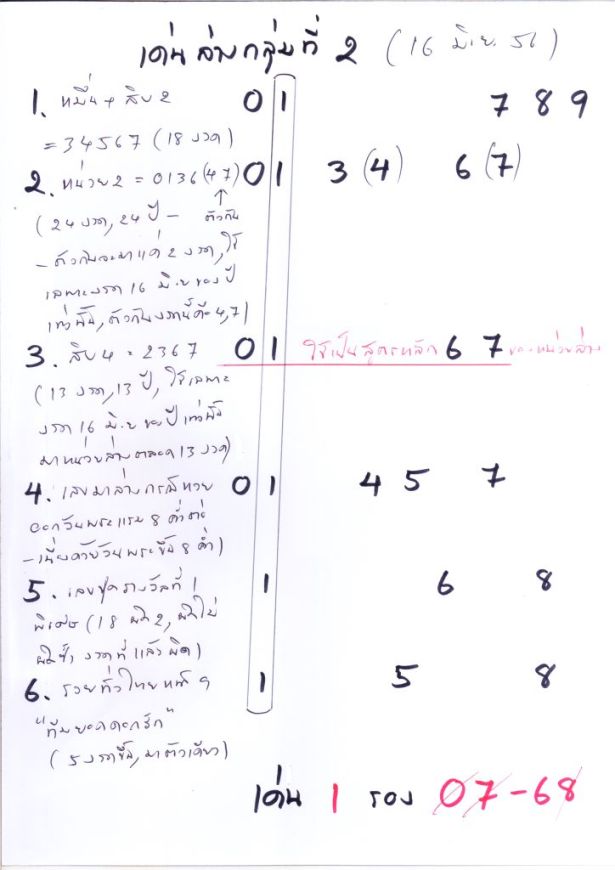 เด่นล่างกลุ่มที่ 2 (16 มิ.ย. 56)
1. หมื่น + สิบ 2 0 1 7 8 9
= 34567 (18 งวด)
2. หน่วย 2 = 0136(47) 0 1 3 (4) 6 (7)
(24 งวด, 24 ปี - ตัวกัน
- ตัวกันจะมาแค่ 2 งวด, ใช้
เฉพาะงวด 16 มิ.ย ของปี
เท่านั้น, ตัวกันงวดนี้คือ 4,7)
3. สิบ 4 = 2367 0 1 ใช้เป็นสูตรหลัก 6 7 ของหน่วยล่าง
(13 งวด, 13 ปี, ใช้เฉพาะ
งวด 16 มิ.ย ของปีเท่านั้น
มาหน่วยล่างตลอด 13 งวด)
4. เลขมาล่างกรณีหวย 0 1 4 5 7
ออกวันพระแรม 8 ค่ำต่อ
- เนื่องด้วยวันพระขึ้น 8 ค่ำ)
5. เลขชุดรางวัลที่ 1 1 6 8
พิเศษ (18 ผิด 2, ผิดไม่
ผิดซ้ำ งวดที่แล้วผิด)
6. รวยทั่วไทยหน้า 9 1 5 8
"ทีมยอดดอกรัก"
(5 งวดขึ้น, มาตัวเดียว)
เด่น 1 รอง 07-68